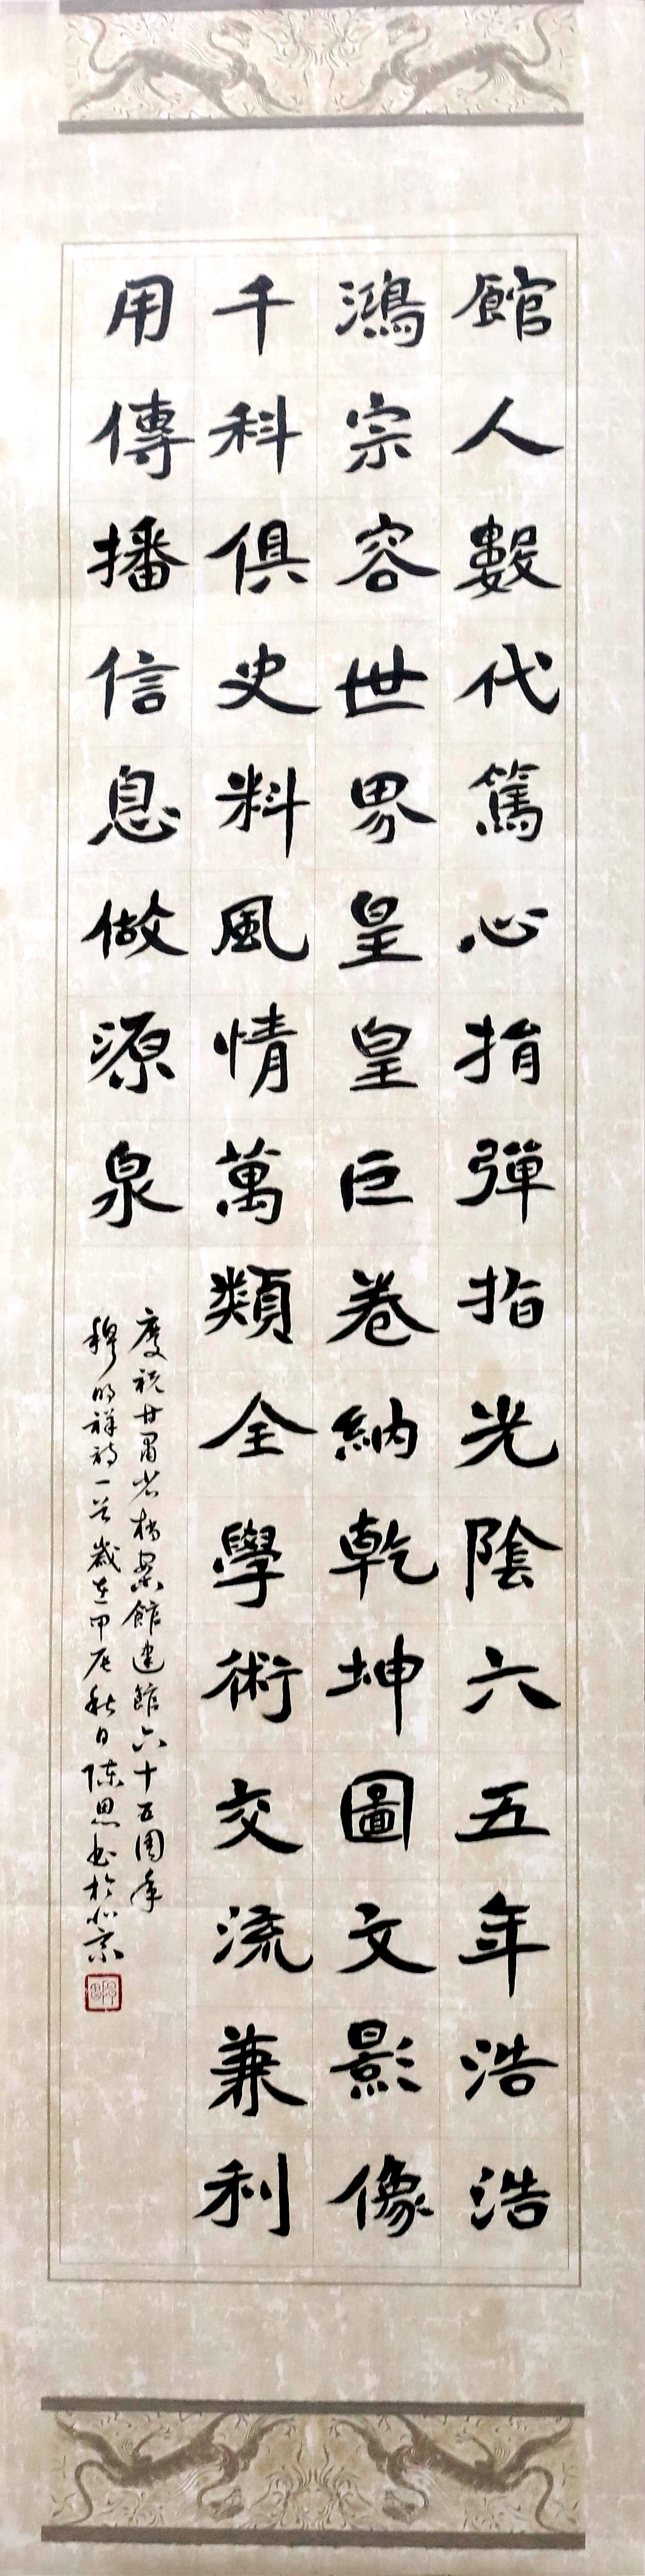 館人數代篤心指彈指光陰六五年浩浩
鴻宗容世界皇皇巨卷納乾坤圖文影像
千科俱史料風情萬類全學術交流兼利
用傳播信息做源泉
慶祝甘肅省檔案館建館六十五周年
穆明祥詩一首歲在甲辰秋日陳思書於北京